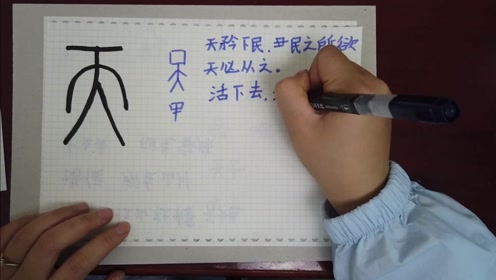 天
甲
天矜下民，尹民之所欲
天必从之。
活下去，